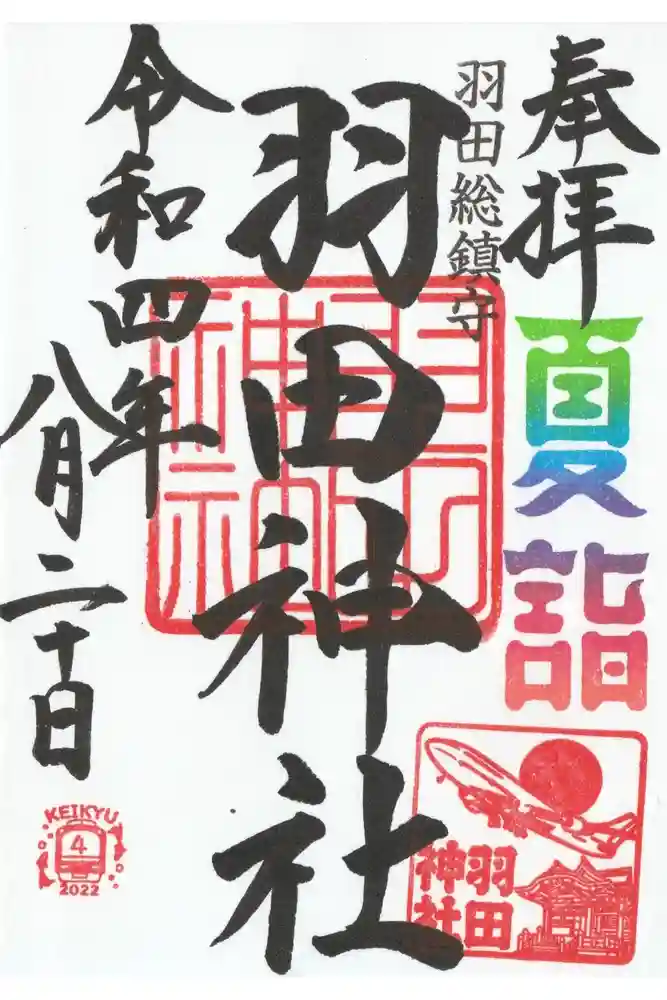 奉拝
夏詣
羽田総鎮守
羽田神社
羽田神社
令和四年
八月二十日
羽田
神社
KEIKYU
4
2022